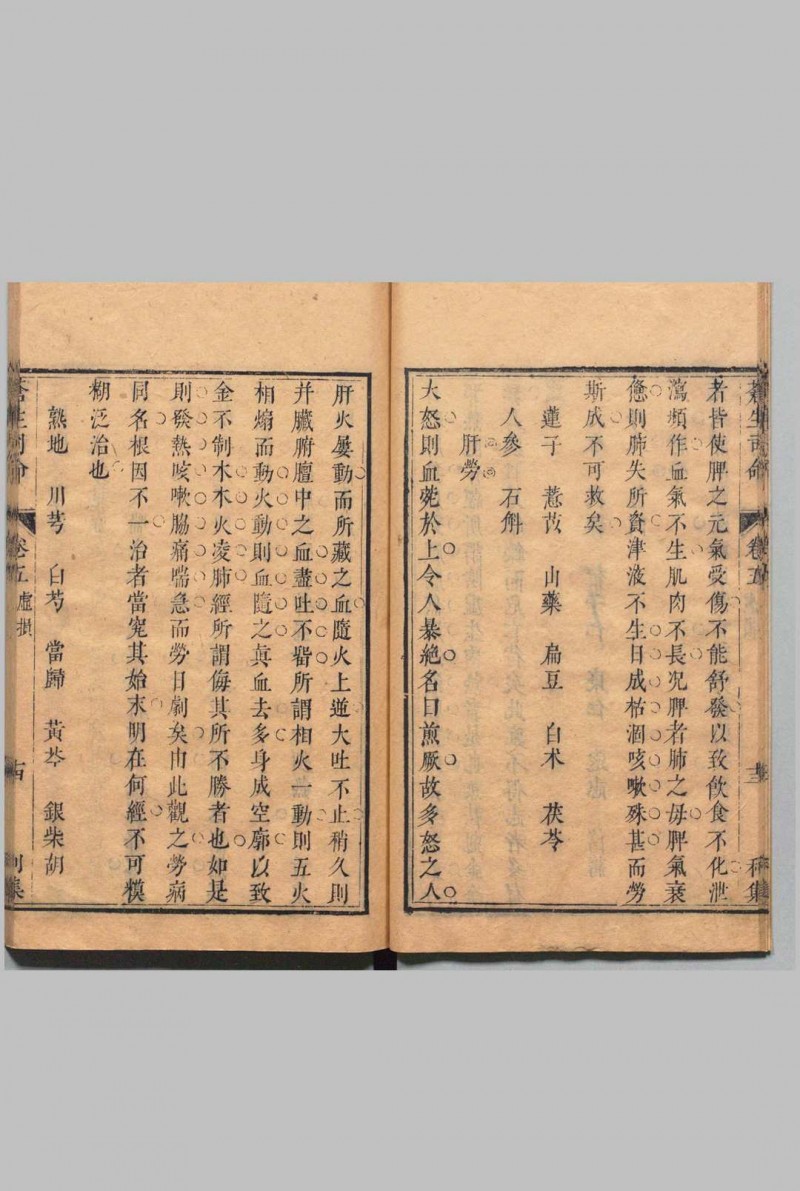 蒼生司命 卷五 利集
者皆使脾之元氣受傷不能舒發以致飲食不化泄
瀉頻作血氣不生肌肉不長况脾者肺之母脾氣衰
憊則肺失所資津液不生日成枯涸咳嗽殊甚而勞
斯成不可救矣
蓮子 薏苡 山藥 扁豆 白术 茯苓
人參 石斛
肝勞
大怒則血菀於上令人暴絶名曰煎厥故多怒之人
肝火屢動而所藏之血隨火上逆大吐不止稍久則
并臟腑膻中之血盡吐不畱所謂相火一動則五火
相煽而動火動則血隨之眞血去多身成空廓以致
金不制木木火凌肺經所謂侮其所不勝者也如是
則發熱咳嗽脇痛喘急而勞日劇矣由此觀之勞病
同名根因不一治者當究其始末明在何經不可模
糊泛治也
熟地 川芎 白芍 當歸 黃芩 銀柴胡
蒼生司命 卷五 虛損 利集